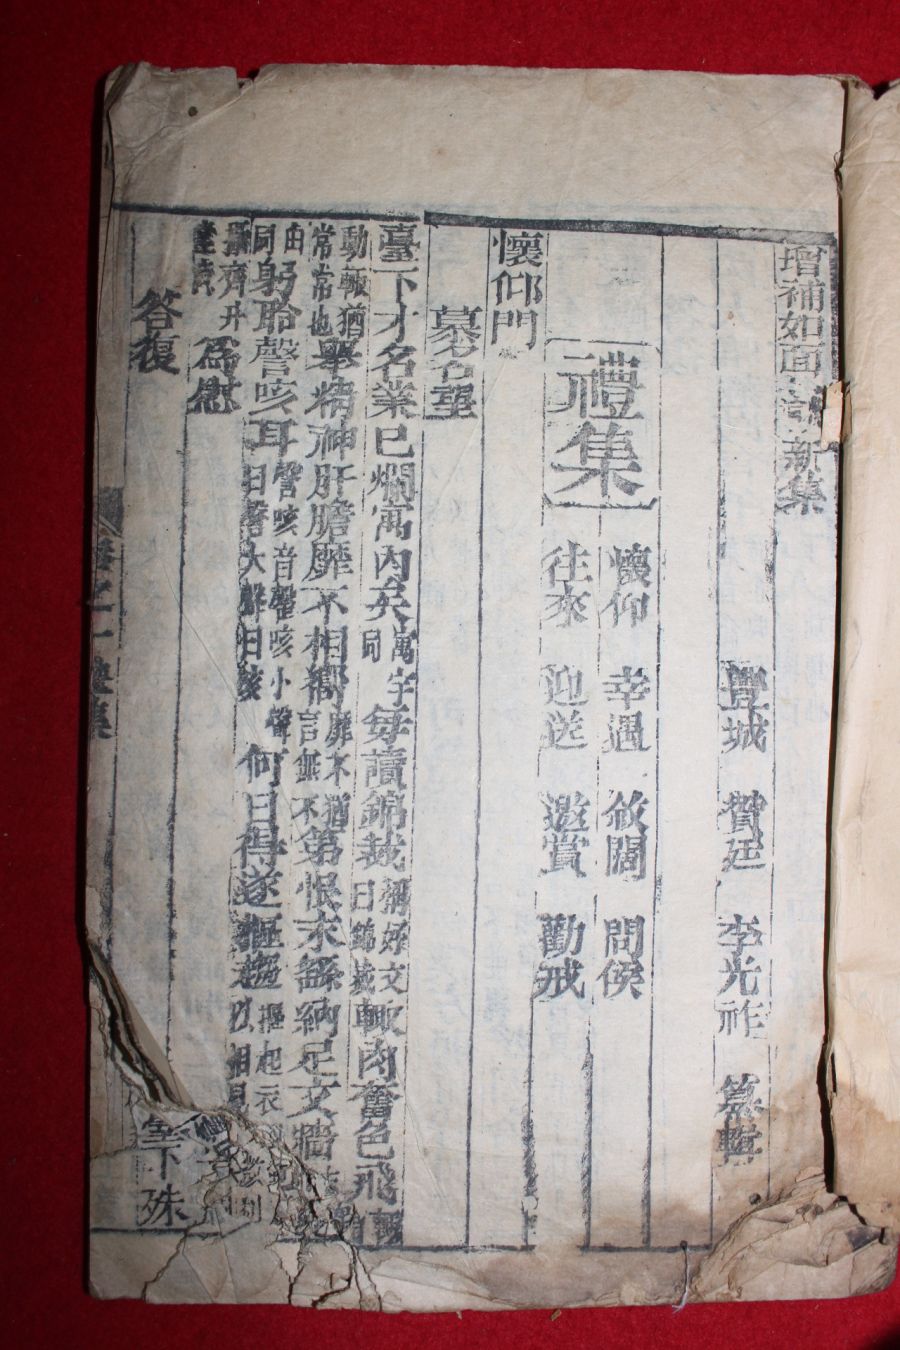 增補如面談新集
豐城　贊廷　李光祚　纂輯
禮集
懷仰　幸遇　敘闊　問候
往來　迎送　邀賞　勸戒
懷仰門
慕名望
臺下才名業已爛寓內矣寓字同每讀錦裁稱好文曰錦裁輒肉奮色飛輒
動輒猶常常也舉精神肝膽靡不相嚮靡不猶言無不第恨未繇納足文牆
由同躬聆謦咳耳謦咳音磬咳小聲曰謦大聲曰咳何日得遂摳趨摳起衣
攝齊升為慰
答復
卷之一禮集
下殊